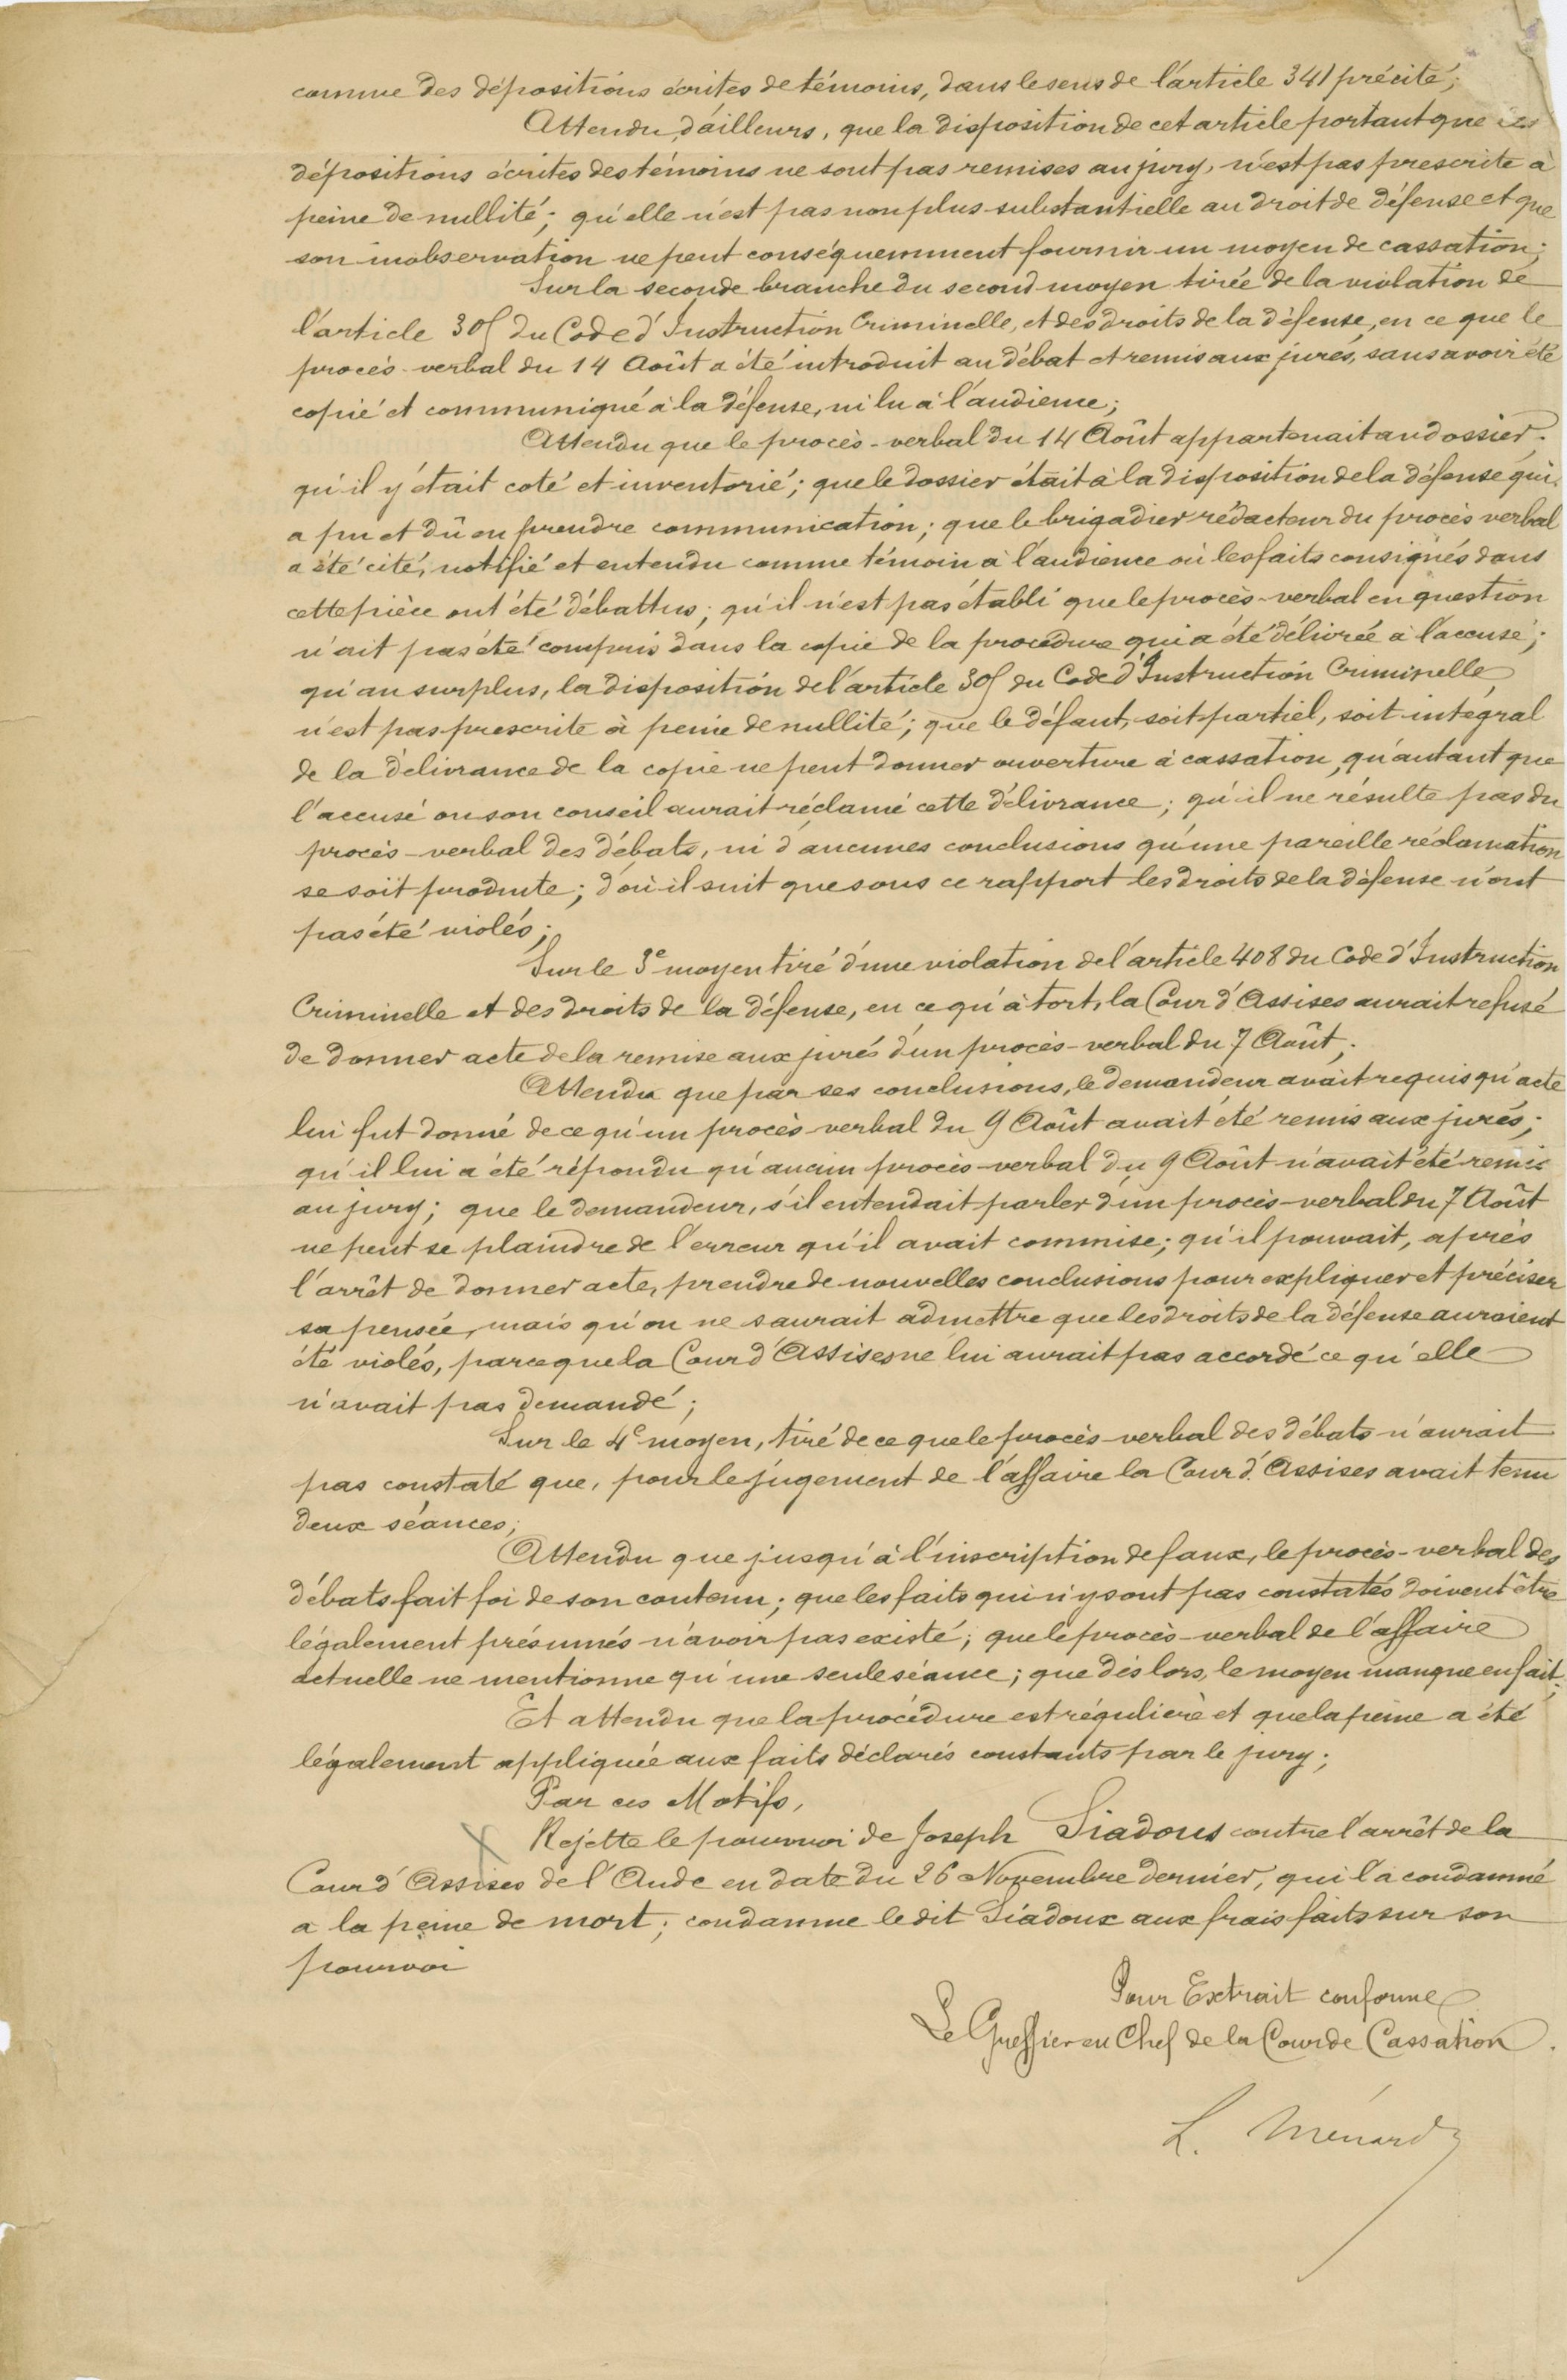 comme des dépositions écrites de témoins, dans le sens de l'article 341 précité;
Attendu, d'ailleurs, que la disposition de cet article portant que les
dépositions écrites des témoins ne sont pas remises au jury, n'est pas prescrite à
peine de nullité; qu'elle n'est pas non plus substantielle au droit de défense et que
son inobservation ne peut conséquemment fournir un moyen de cassation;
Sur la seconde branche du second moyen tirée de la violation de
l'article 305 du Code d'Instruction Criminelle, et des droits de la défense, en ce que le
procès-verbal du 14 Août a été introduit au débat et remis aux jurés, sans avoir été
copié et communiqué à la défense, ni lu à l'audience;
Attendu que le procès-verbal du 14 Août appartenait au dossier;
qu'il y était coté et inventorié; que le dossier était à la disposition de la défense qui
a pu et dû en prendre communication; que le brigadier rédacteur du procès verbal
a été cité, notifié et entendu comme témoin à l'audience où les faits consignés dans
cette pièce ont été débattus; qu'il n'est pas établi que le procès-verbal en question
n'ait pas été compris dans la copie de la procédure qui a été délivrée à l'accusé;
qu'au surplus, la disposition de l'article 305 du Code d'Instruction Criminelle
n'est pas prescrite à peine de nullité; que le défaut, soit partiel, soit intégral
de la délivrance de la copie ne peut donner ouverture à cassation, qu'autant que
l'accusé ou son conseil aurait réclamé cette délivrance; qu'il ne résulte pas du
procès-verbal des débats, ni d'aucunes conclusions qu'une pareille réclamation
se soit produite; d'où il suit que sous ce rapport les droits de la défense n'ont
pas été violés;
Sur le 3e moyen tiré d'une violation de l'article 408 du Code d'Instruction
Criminelle et des droits de la défense, en ce qu'à tort, la Cour d'Assises aurait refusé
de donner acte de la remise aux jurés d'un procès-verbal du 7 Août;
Attendu que par ses conclusions, le demandeur avait requis qu'acte
lui fut donné de ce qu'un procès-verbal du 9 Août avait été remis aux jurés;
qu'il lui a été répondu qu'aucun procès-verbal du 9 Août n'avait été remis
au jury; que le demandeur, s'il entendait parler d'un procès-verbal du 7 Août
ne peut se plaindre de l'erreur qu'il avait commise; qu'il pouvait, après
l'arrêt de donner acte, prendre de nouvelles conclusions pour expliquer et préciser
sa pensée, mais qu'on ne saurait admettre que les droits de la défense auraient
été violés, parce que la Cour d'Assises ne lui aurait pas accordé ce qu'elle
n'avait pas demandé;
Sur le 4e moyen, tiré de ce que le procès-verbal des débats n'aurait
pas constaté que, pour le jugement de l'affaire la Cour d'Assises avait tenu
deux séances;
Attendu que jusqu'à l'inscription de faux, le procès-verbal des
débats fait foi de son contenu; que les faits qui n'y sont pas constatés doivent être
légalement présumés n'avoir pas existé; que le procès-verbal de l'affaire
actuelle ne mentionne qu'une seule séance; que dès lors, le moyen manque en fait;
Et attendu que la procédure est régulière et que la peine a été
légalement appliquée aux faits déclarés constants par le jury;
Par ces Motifs,
Rejette le pourvoi de Joseph Siadous contre l'arrêt de la
Cour d'Assises de l'Aude en date du 26 Novembre dernier, qui l'a condamné
a la peine de mort; condamne le dit Siadoux aux frais faits sur son
pourvoi
Pour Extrait conforme
Le Greffier en Chef de la Cour de Cassation.
L. Ménard